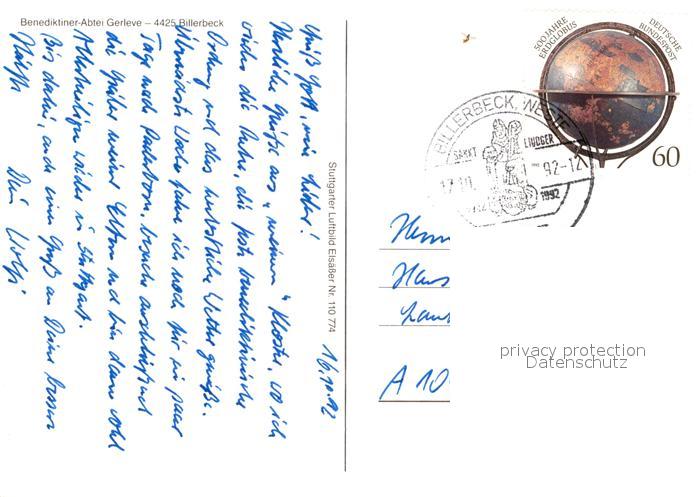 Benediktiner-Abtei Gerleve – 4425 Billerbeck
16.10.92
Grüß Gott, mein Lieber!
Herzliche Grüße aus "meinem" Kloster, wo ich
wieder die Ruhe, die frohe benediktinische
Ordnung und das herbstliche Wetter genieße.
Übernächste Woche fahre ich noch für ein paar
Tage nach Paderborn, besuche anschließend
die Gräber meiner Eltern und bin dann wohl
Allerheiligen wieder in Stuttgart.
Bis dahin, auch einen Gruß an Deine bessere
Hälfte
Dein Wolfg.
Stuttgarter Luftbild Elsäßer Nr. 110 774
500 JAHRE
ERDGLOBUS
DEUTSCHE
BUNDESPOST
60
BILLERBECK, WESTF
SANKT LIUDGER
92-12
1992
Herrn
Hans
A 10
privacy protection
Datenschutz